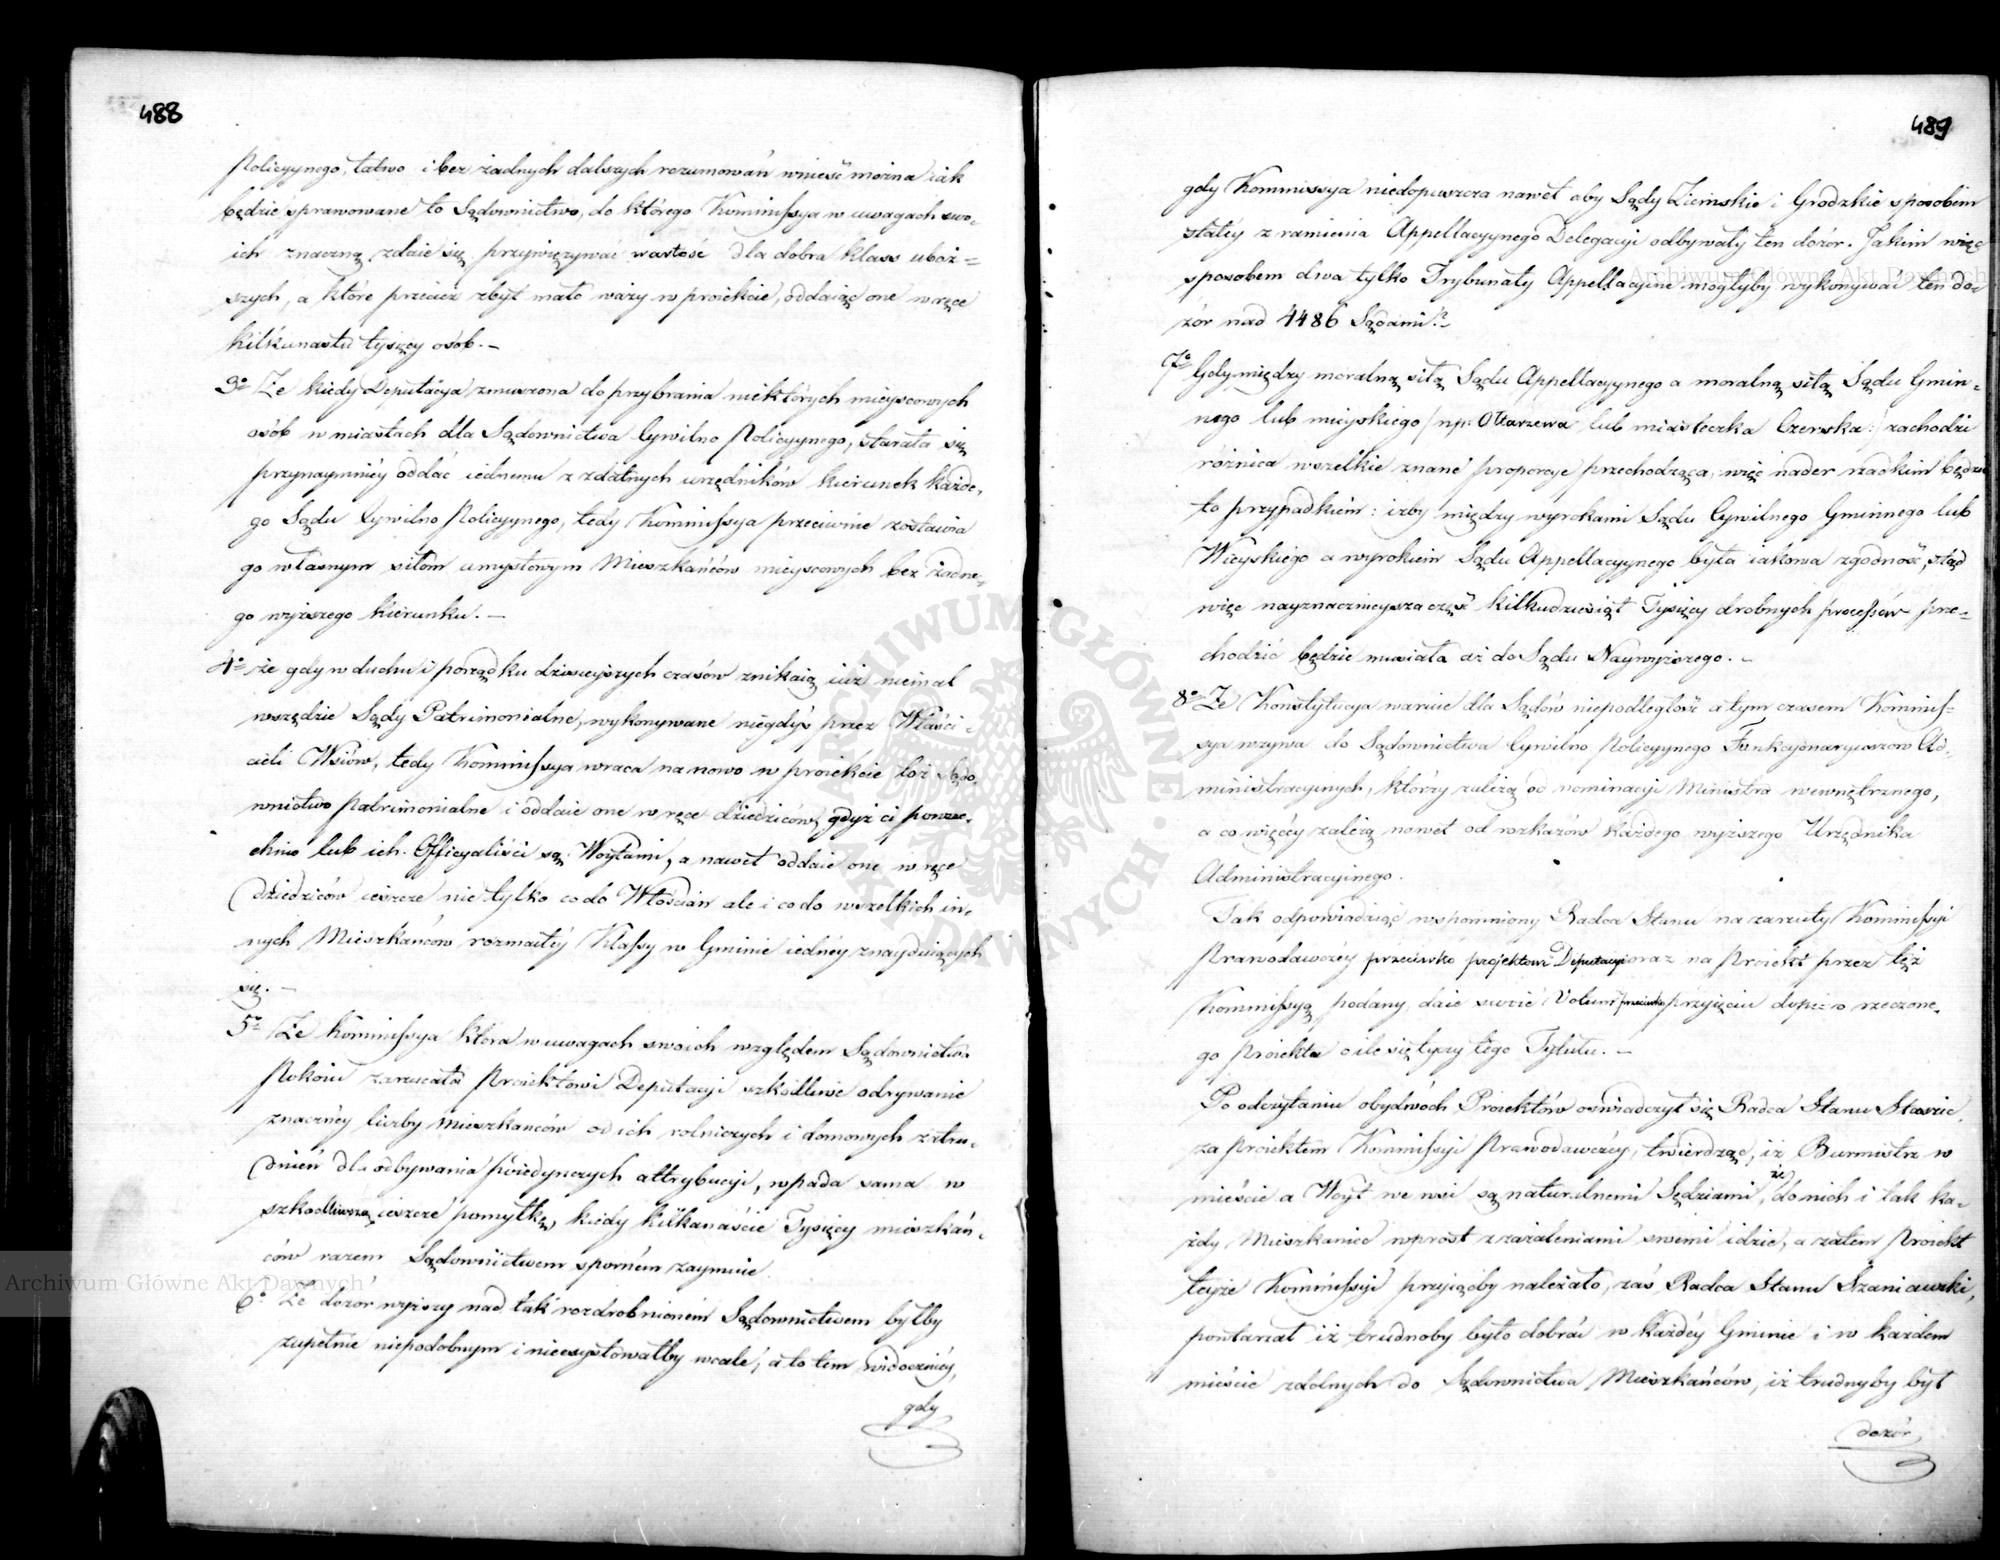 488
Policyynego, łatwo i bez żadnych dalszych rozumowań wnieść można iak
będzie sprawowane to Sądownictwo, do którego Kommissya w uwagach swo-
ich znaczną zdaie się przywięzywać wartość dla dobra klass uboż=
szych, a które przecież zbyt mało waży w proiekcie, oddaiąc one w ręce
kilkunastu tysięcy osób. –
3o Że kiedy Deputacya zmuszona do przybrania niektórych mieyscowych
osób w miastach dla Sądownictwa Cywilno Policyynego, starała się
przynaymniéy oddać iednemu z zdatnych urzędników kierunek każde-
go Sądu Cywilno Policyynego, tedy Kommissya przeciwnie zostawia
go własnym siłom umysłowym Mieszkańców mieyscowych bez żadne-
go wyższego kierunku. –
4o że gdy w duchu i porządku dzisieyszych czasów znikaią iuż niemal
wszędzie Sądy Patrimonialne, wykonywane niegdyś przez Właści-
cieli Wsiów, tedy Kommissya wraca na nowo w proiekcie toż Sądo-
wnictwo Patrimonialne i oddaie one w ręce dziedziców, gdyż ci powsze-
chnie lub ich Officyaliści są Woytami, a nawet oddaie one w ręce
Dziedziców ieszcze nie tylko co do Włościan ale i co do wszelkich in-
nych Mieszkańców rozmaitéy Klassy w Gminie iednéy znayduiących
się. –
5o Że Kommissya która w uwagach swoich względem Sądownictwa
Pokoiu zarzucała Proiektowi Deputacyi szkodliwe odrywanie
znacznéy liczby Mieszkańców od ich rolniczych i domowych zatru-
dnień dla odbywania poiedynczych attrybucyi, wpada sama w
szkodliwszą ieszcze pomyłkę, kiedy kilkanaście Tysięcy mieszkań-
ców razem Sądownictwem sporném zaymuie.
6o Że dozór wyższy nad tak rozdrobnioném Sądownictwem byłby
zupełnie niepodobnym i nieexystowałby wcale, a to tem widoczniéy,
gdy
489
gdy Kommissya niedopuszcza nawet aby Sądy Ziemskie i Grodzkie sposobem
stałéy z ramienia Appellacyynego Delegacyi odbywały ten dozór. Jakim więc
sposobem dwa tylko Trybunały Appellacyine mogłyby wykonywać ten do-
zór nad 4486 Sądami?
7o Gdy między moralną siłą Sądu Appellacyynego a moralną siłą Sądu Gmin-
nego lub mieyskiego /np: Ołtarzewa lub miasteczka Czerska:/ zachodzi
różnica wszelkie znane proporcye przechodząca, więc nader rzadkim będzie
to przypadkiem: iżby między wyrokami Sądu Cywilnego Gminnego lub
Wieyskiego a wyrokiem Sądu Appellacyynego była iakowa zgodność, stąd
więc nayznacznieysza część kilkudziesiąt Tysięcy drobnych processów prze-
chodzić będzie musiała aż do Sądu Naywyższego. –
8o Że Konstytucya waruie dla Sądów niepodległość a tym czasem Kommis-
sya wzywa do Sądownictwa Cywilno Policyynego Funkcyonaryuszów Ad-
ministracyinych, którzy zależą od nominacyi Ministra wewnętrznego,
a co więcéy zależą nawet od rozkazów każdego wyższego Urzędnika
Administracyinego.
Tak odpowiadaiąc wspomniony Radca Stanu na zarzuty Kommissyi
Prawodawczéy przeciwko projektowi Deputacyi oraz na Proiekt przez tęż
Kommissyą podany, daie swoie Votum przeciwko przyięciu dopiero rzeczone-
go Proiektu o ile się tyczy tego Tytułu. –
Po odczytaniu obydwóch Proiektów oświadczył się Radca Stanu Staszic,
za proiektem Kommissyi Prawodawczéy, twierdząc, iż Burmistrz w
mieście a Woyt we wsi są naturalnemi Sędziami, że do nich i tak ka-
żdy Mieszkaniec wprost z zażaleniami swemi idzie, a zatem Proiekt
teyże Kommissyi przyiąćby należało, zaś Radca Stanu Szaniawski,
powtarzał iż trudnoby było dobrać w każdéy Gminie i w każdem
mieście zdolnych do Sądownictwa Mieszkańców, iż trudnyby był
dozór
Archiwum Główne Akt Dawnych
Archiwum Główne Akt Dawnych
ARCHIWUM GŁÓWNE AKT DAWNYCH